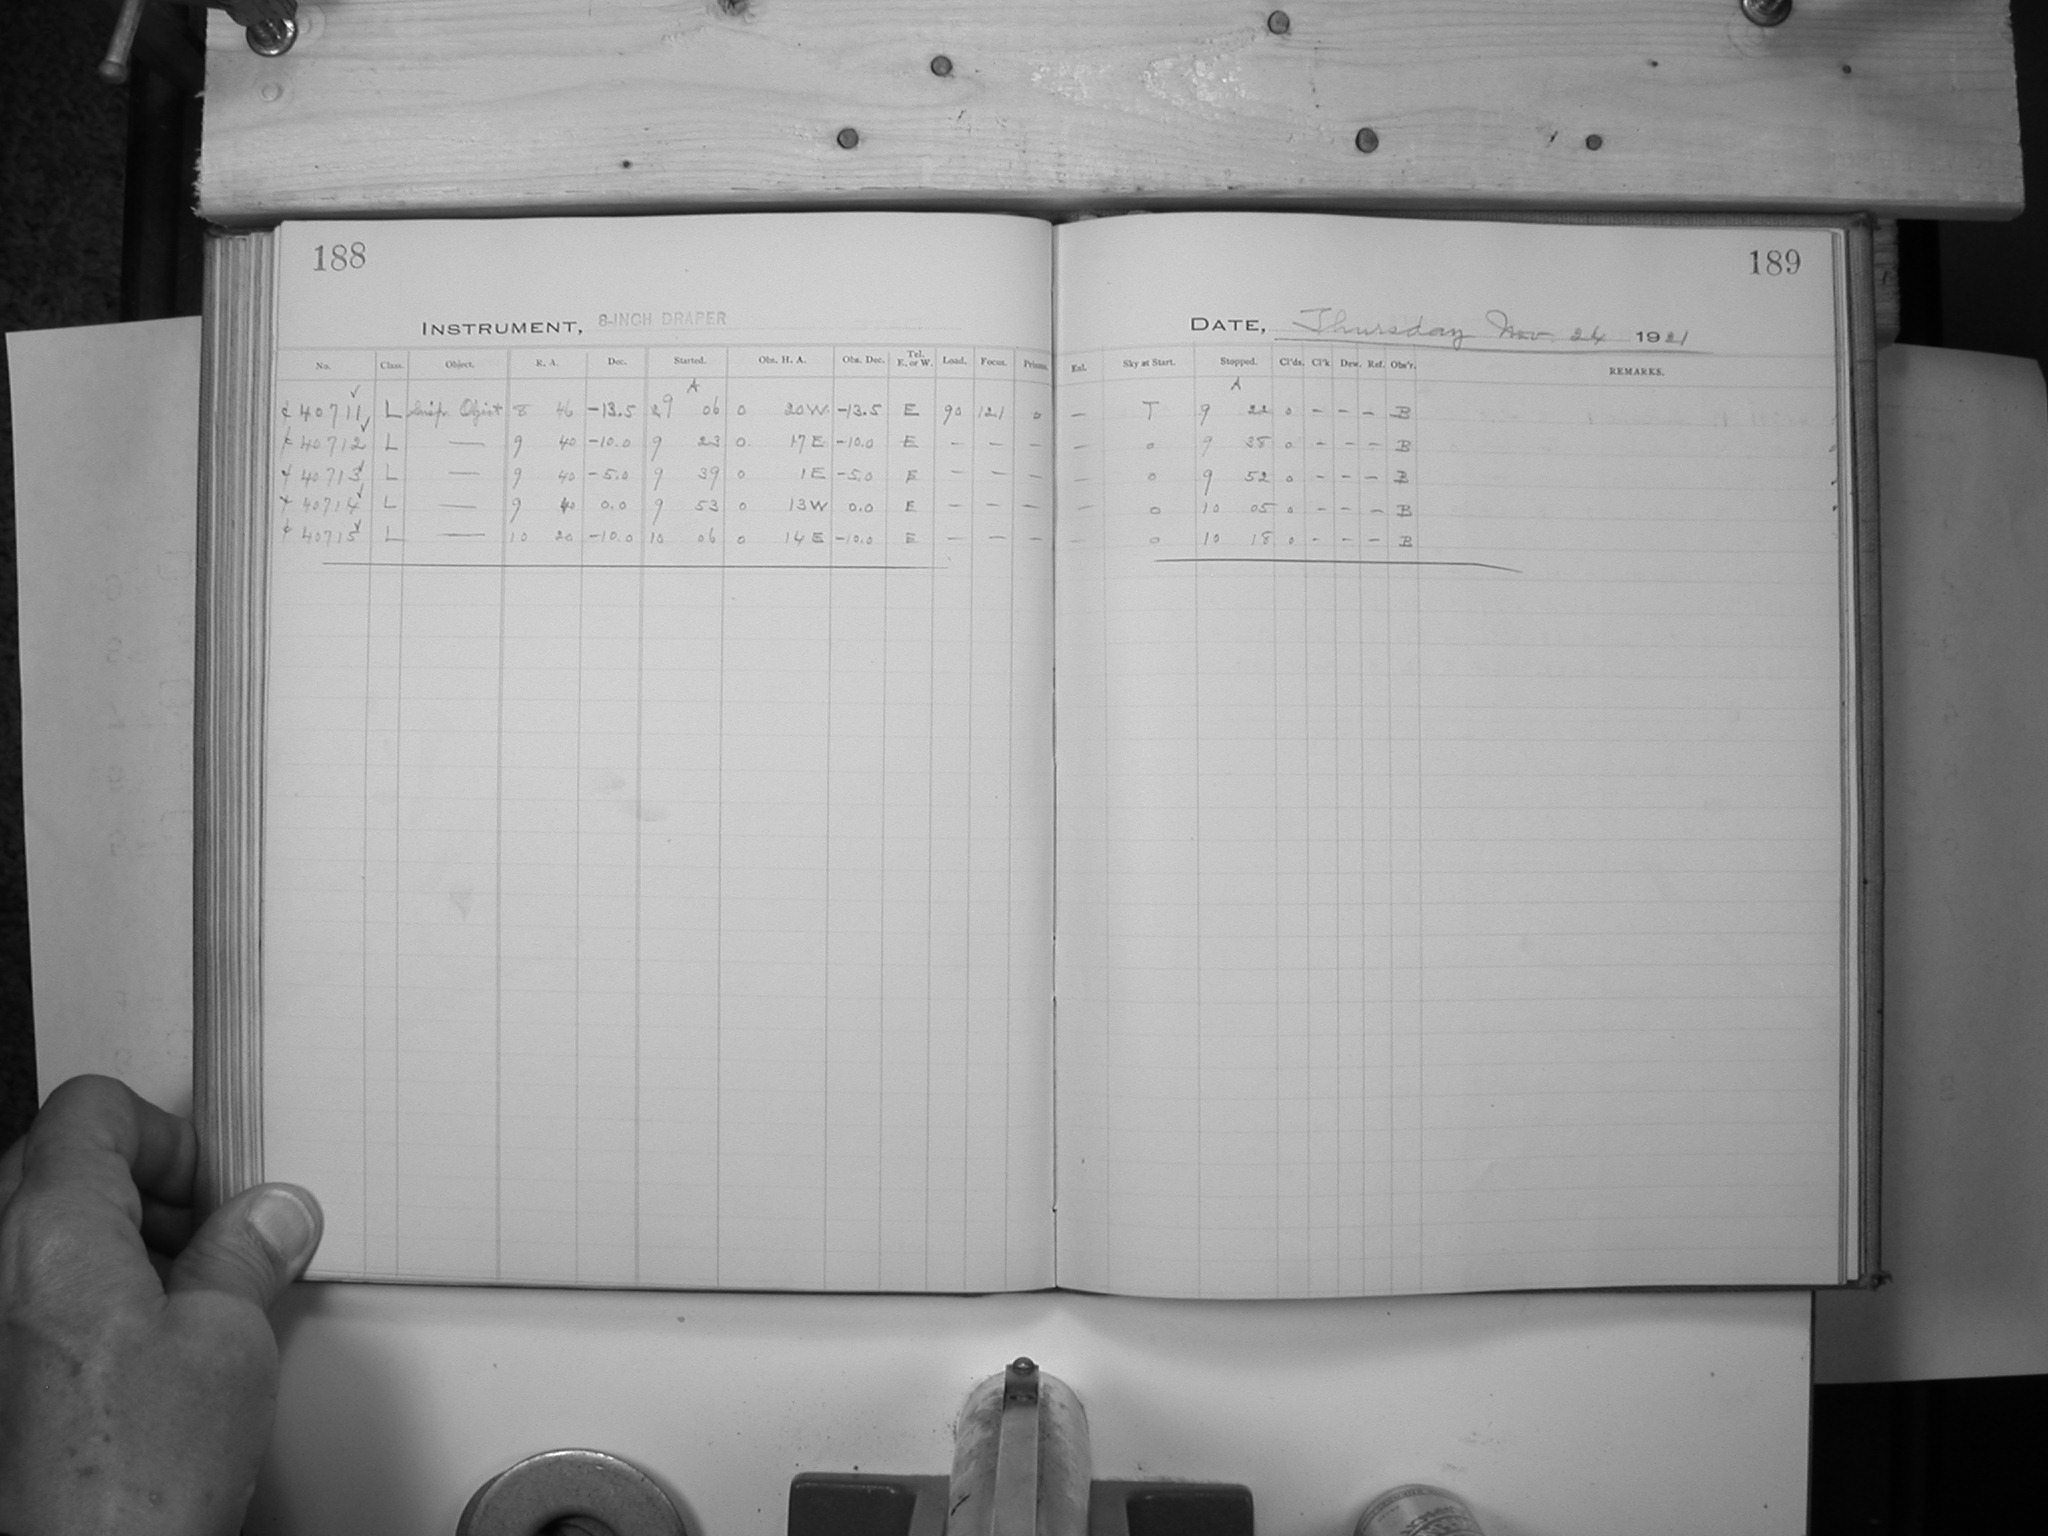 188
189
INSTRUMENT, 8-INCH DRAPER
DATE, Thursday Nov. 24 1921
No. Class. Object. R. A. Dec. Started. Obs. H. A. Obs. Dec. Tel. E. or W. Load. Focus. Prisms. Ext. Sky at Start. Stopped. Cl'ds. Cl'k Dew. Ref. Obs'r. REMARKS.
A A
40711 L Object 8 46 -13.5 9 06 0 20W -13.5 E 90 121 0 — T 9 22 0 - - - B
40712 L — 9 40 -10.0 9 23 0 17E -10.0 E - - - — 0 9 38 0 - - - B
40713 L — 9 40 -5.0 9 39 0 1E -5.0 E - - - — 0 9 52 0 - - - B
40714 L — 9 40 0.0 9 53 0 13W 0.0 E - - - — 0 10 05 0 - - - B
40715 L — 10 20 -10.0 10 06 0 14E -10.0 E - - - — 0 10 18 0 - - - B